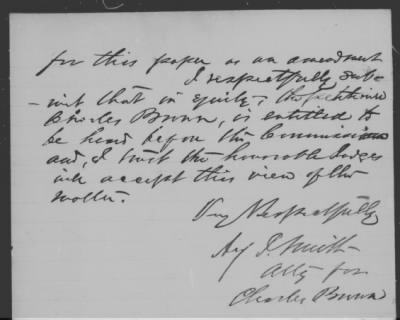 for this paper as an amendment
I respectfully sub-
-mit that in equity, the petitioner
Charles Brown, is entitled to
be heard before the Commission
and, I trust the honorable Judges
will accept this view of the
matter.
Very Respectfully
J. Smith
Atty for
Charles Brown